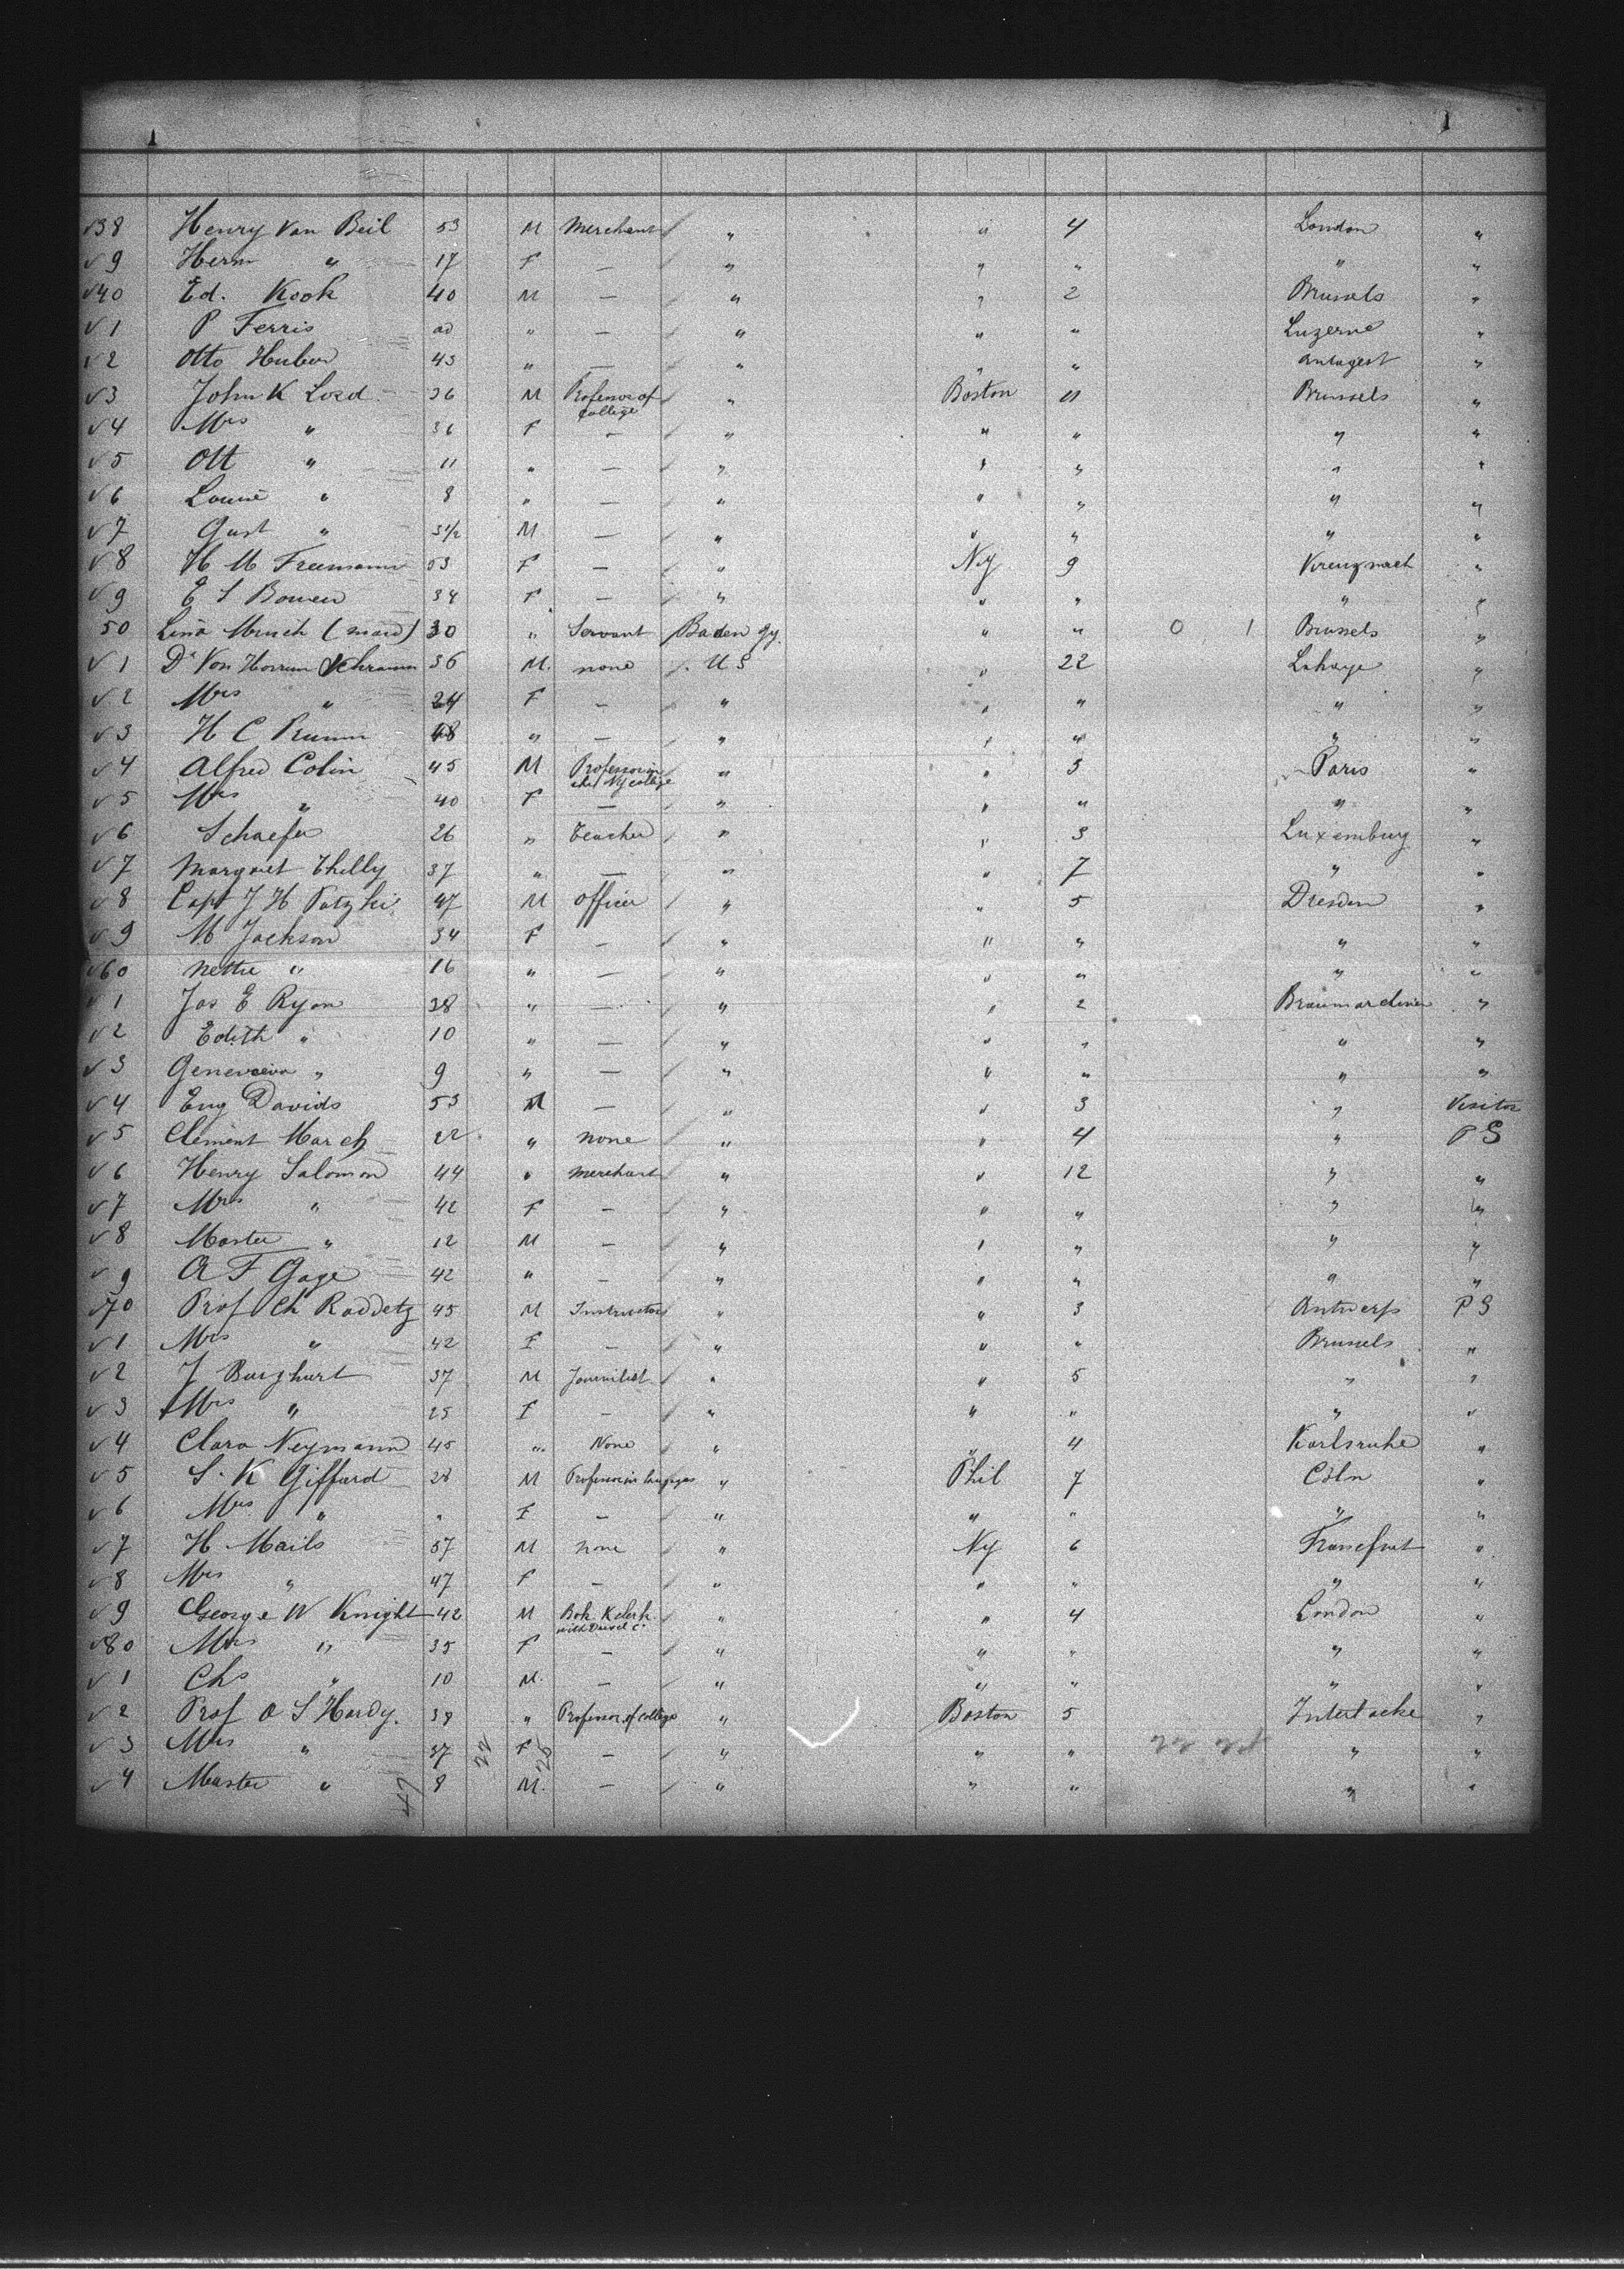 1 1
38 Henry Van Beil 53 M Merchant " " 4 London "
9 Herm " 17 F — " " " " "
40 Ed. Kook 40 M — " " 2 Brussels "
1 P Ferris ad " — " " " Luzerne "
2 Otto Huber 43 " — " " " Antogest "
3 John K Lord 36 M Professor of College " Boston 11 Brussels "
4 Mrs " 36 F — " " " " "
5 Ott " 11 " — " " " " "
6 Louise " 8 " — " " " " "
7 Gust " 3 1/2 M — " " " " "
8 H M Freemann 53 F — " NY 9 Kreuznach "
9 E S Bowen 34 F — " " " " "
50 Lina Munch (maid) 30 " Servant Baden Gy. " " 0 1 Brussels "
1 Dr Von Horrum Schramm 36 M. none U S " 22 Lahaye "
2 Mrs " 24 F — " " " " "
3 H C Prumm 48 " — " " " " "
4 Alfred Colin 45 M Professor in the NY college " " 5 Paris "
5 Mrs " 40 F — " " " " "
6 Schaefer 26 " Teacher " " 3 Luxemburg "
7 Margaret Thilly 37 " — " " 7 " "
8 Capt J H Patzki 47 M officer " " 5 Dresden "
9 M Jackson 34 F — " " " " "
60 Nettie " 16 " — " " " " "
1 Jas E Ryan 38 " — " " 2 "
2 Edith " 10 " — " " " " "
3 Genevieva " 9 " — " " " " "
4 Eug Davids 53 M — " " 3 " Visitor
5 Clement March 22 " none " " 4 " P S
6 Henry Salomon 44 " merchant " " 12 " "
7 Mrs " 42 F — " " " " "
8 Master " 12 M — " " " " "
9 A F Gage 42 " — " " " " "
70 Prof Ch Raddetz 45 M Instructor " " 3 Antwerp P S
1 Mrs " 42 F — " " " Brussels "
2 J Burghart 37 M Journilist " " 5 " "
3 Mrs " 25 F — " " " " "
4 Clara Neymann 45 " None " " 4 Karlsruhe "
5 S. K Giffard 28 M Professor in languges " Phil 7 Cöln "
6 Mrs " " F — " " " " "
7 H Mails 57 M none " Ny 6 Francfurt "
8 Mrs " 47 F — " " " " "
9 George W Knight 42 M Bok. K clerk " " 4 London "
80 Mrs " 35 F — " " " " "
1 Chs " 10 M. — " " " " "
2 Prof A S Hardy. 38 " Professor of college " Boston 5 "
3 Mrs " 37 22 F 25 — " " " 22 "
4 Master " 8 M. — " " " " "